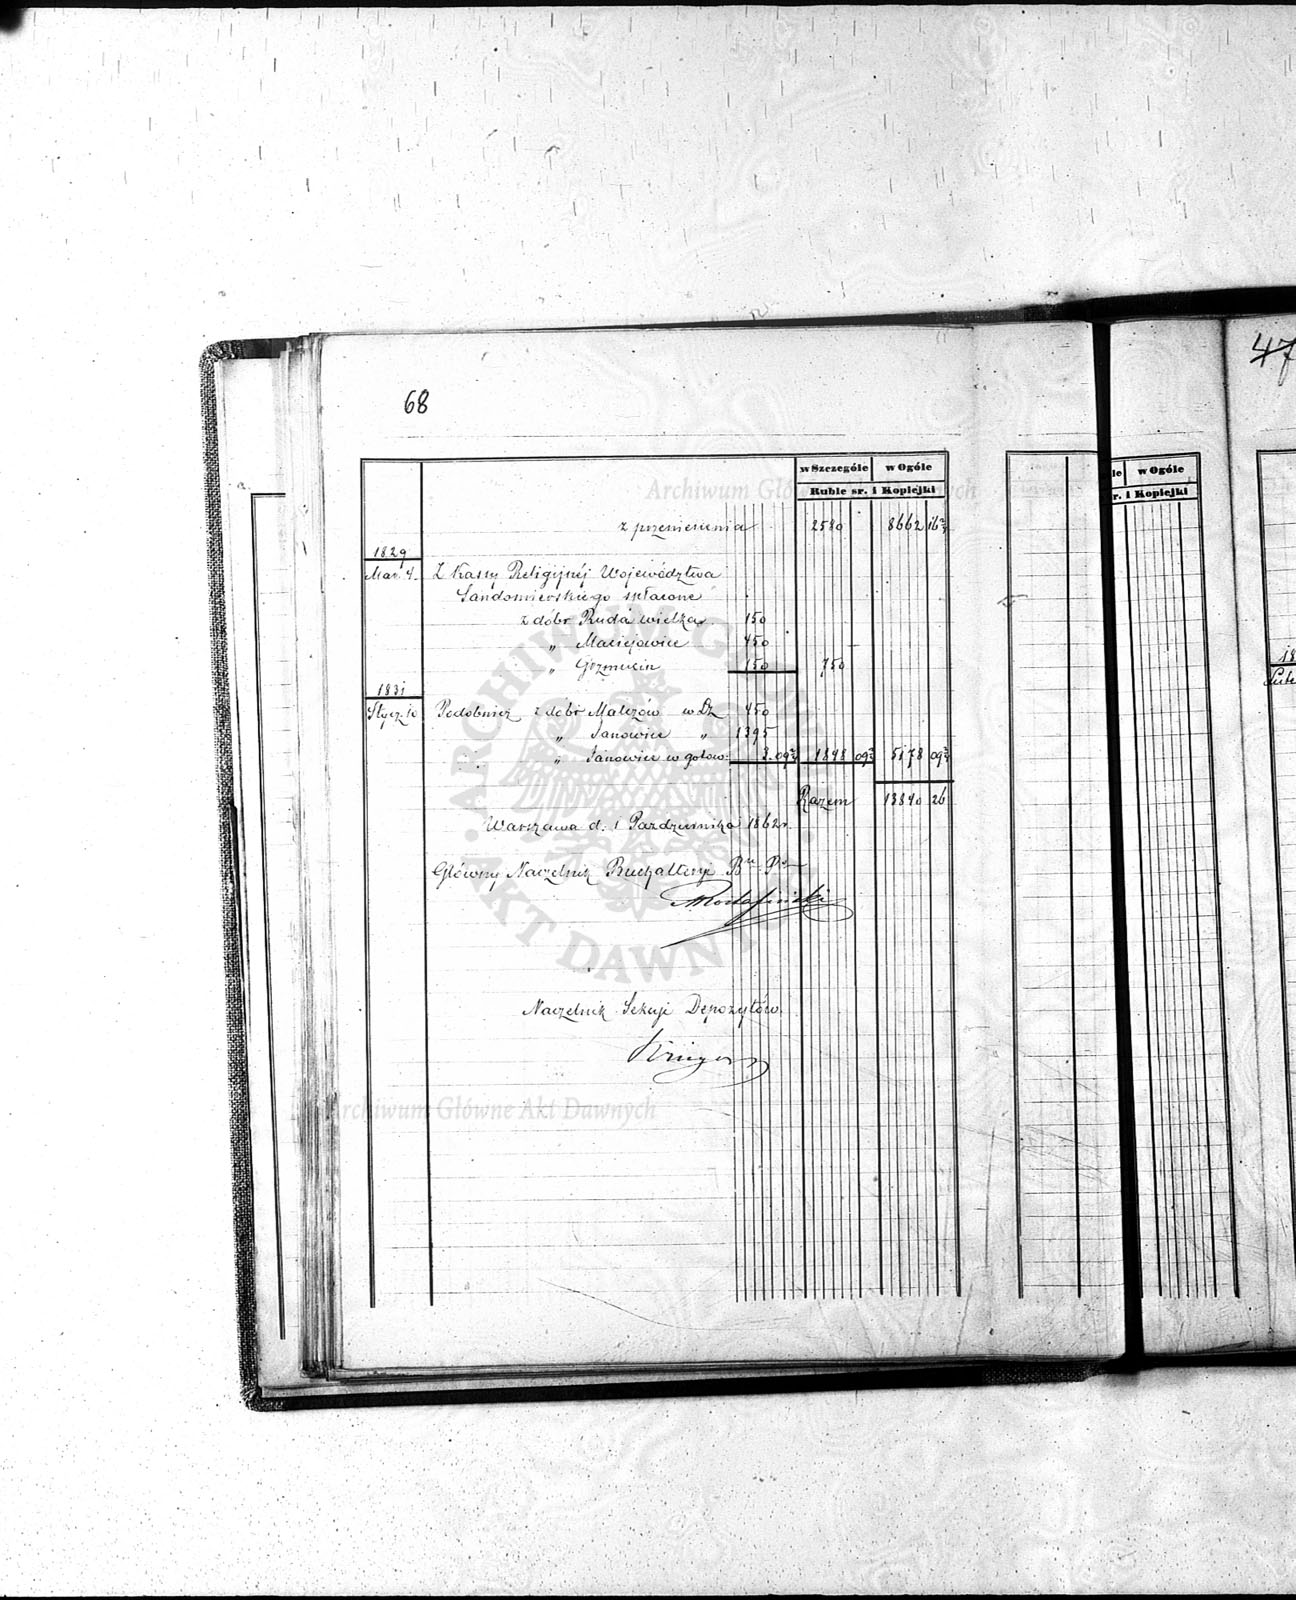 47
68
w Szczególe w Ogóle
Ruble sr. i Kopiejki
z przeniesienia 2580 8662 16¾
1829
Mar. 4. Z Kassy Religijnéj Województwa
Sandomierskiego spłacone
z dóbr Ruda wielka 150
„ Maciejowice 450
„ 150 750
1831
Stycz. 10 Podobnież z dóbr Malczów w Lz 450
„ Janowice „ 1395
„ Janowice w gotow: 3. 09¾ 1848 09¾ 5178 09¾
Razem 13840 26
Warszawa d. 1 Października 1862 r.
Główny Naczelnik Buchalteryi
Naczelnik Sekcji Depozytów
w Ogóle
r. i Kopiejki
Archiwum Główne Akt Dawnych
ARCHIWUM GŁÓWNE AKT DAWNYCH
Archiwum Główne Akt Dawnych